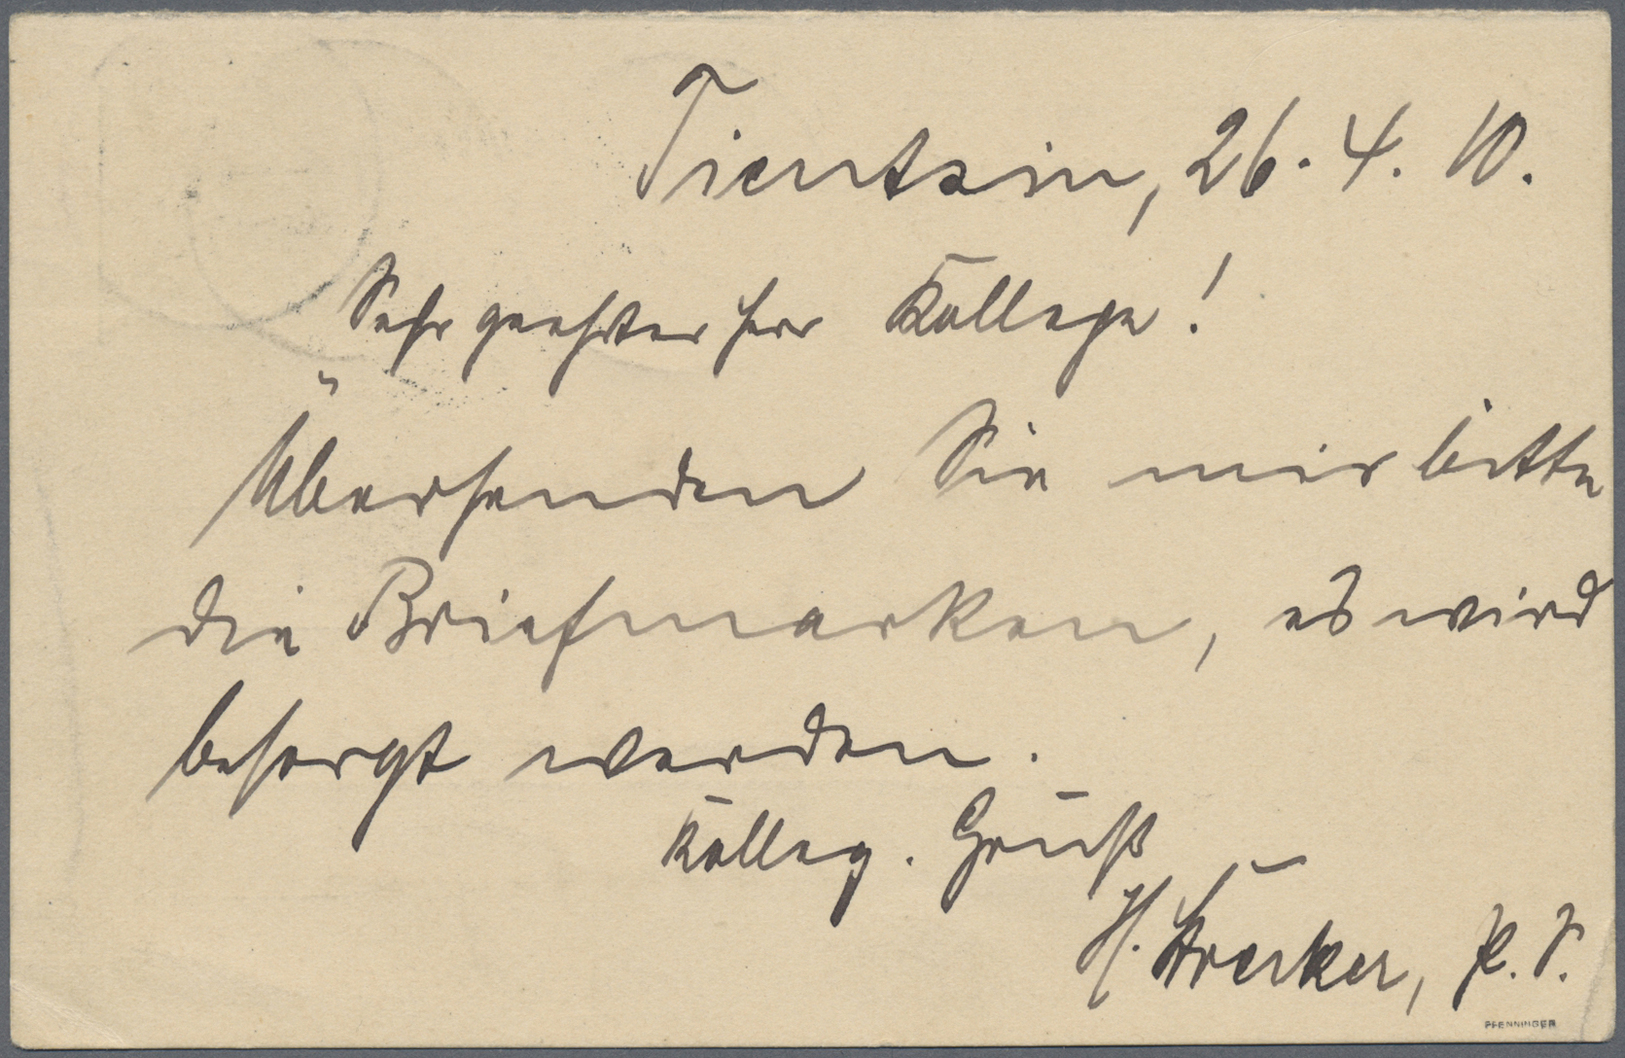 Tientsin, 26. 4. 10.
Sehr geehrter Herr Kollege!
Übersenden Sie mir bitte
die Briefmarken, es wird
besorgt werden.
Kolleg. Gruß
H.
PFENNINGER